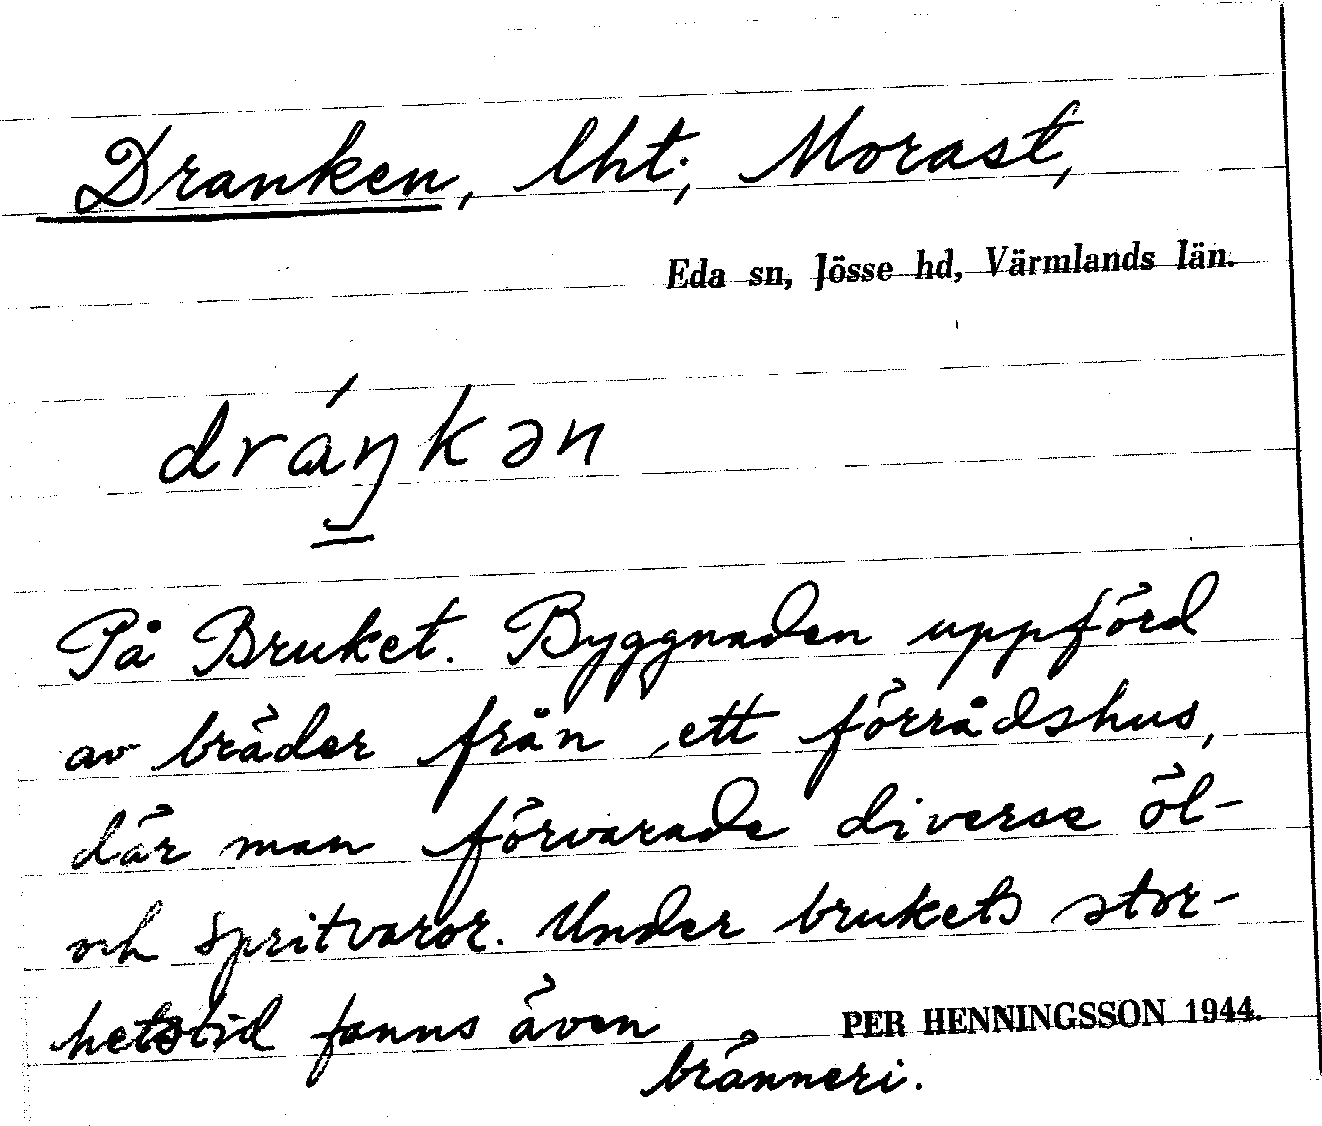 Dranken, lht; Morast,
Eda sn, Jösse hd, Värmlands län.
dráŋkən
På Bruket. Byggnaden uppförd
av bräder från ett förrådshus,
där man förvarade diverse öl-
och spritvaror. Under brukets stor-
hetstid fanns även
PER HENNINGSSON 1944.
bränneri.